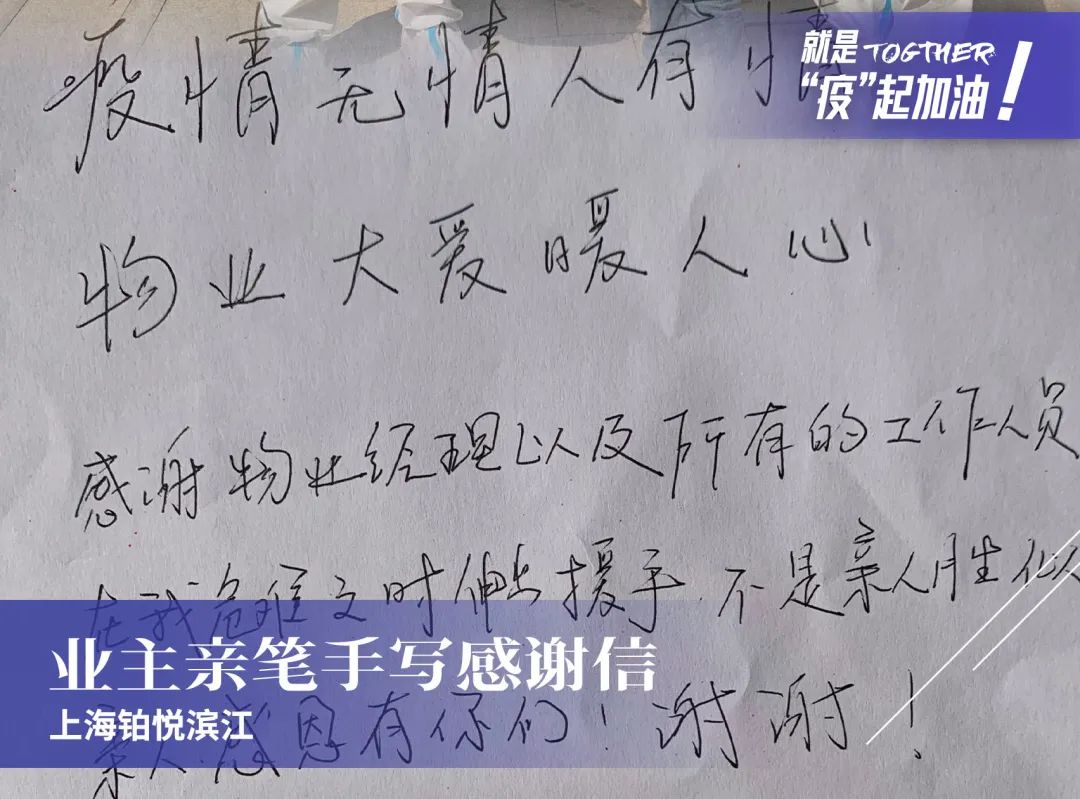 就是TOGTHER
“疫”起加油！
疫情无情人有情
物业大爱暖人心
感谢物业经理以及所有的工作人员
在我危难之时伸出援手.不是亲人胜似
亲人.感恩有你们!谢谢!
业主亲笔手写感谢信
上海铂悦滨江